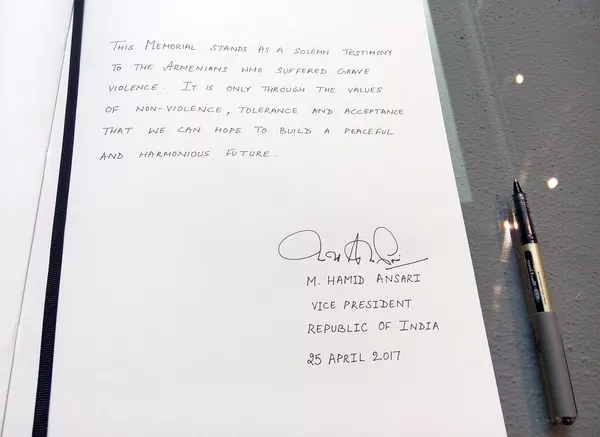 THIS MEMORIAL STANDS AS A SOLEMN TESTIMONY
TO THE ARMENIANS WHO SUFFERED GRAVE
VIOLENCE. IT IS ONLY THROUGH THE VALUES
OF NON-VIOLENCE, TOLERANCE AND ACCEPTANCE
THAT WE CAN HOPE TO BUILD A PEACEFUL
AND HARMONIOUS FUTURE.
M. HAMID ANSARI
VICE PRESIDENT
REPUBLIC OF INDIA
25 APRIL 2017